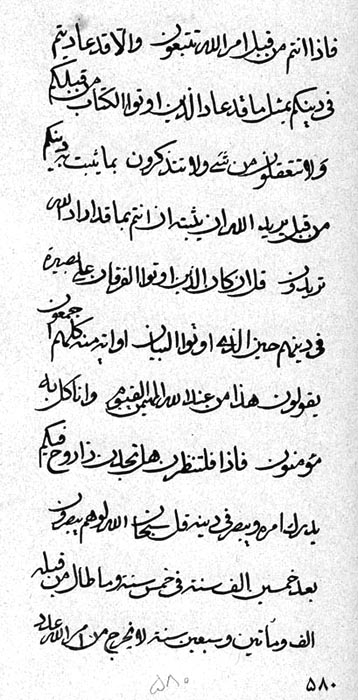 فاذا انتم من قبل امر الله تتبعون والا قد عاديتم
فى دينكم بمثل ما قد عاد الذين اوتوا الكتاب من قبلكم
ولا تتعقلون من شئ ولا تتذكرون بما يثبت به دينكم
من قبل يريد الله ان يثبته ان انتم بما قد اراد الله
تريدون قل ان كان الذين اوتوا الفرقان على بصيرة
فى دينهم حين الذى اوتوا البيان او اتيه منه كلهم جمعون
يقولون هذا من عند الله المهيمن القيوم وانا كل به
مؤمنون فاذا فلتنظرن هل تجدن ذا روح فيكم
يدرك امره ويبصر فى دينه قل سبحان الله لو هم يبصرون
بعد خمسين الف سنة فى خمس سنة وما طال من قبله
الف ومأتين وسبعين سنة لا يخرج من امر الله عدد
٥٨٠
٥٨٠